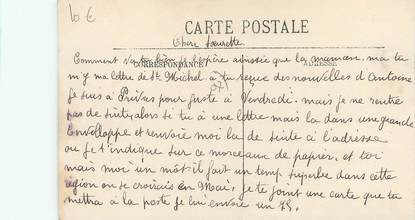 10 €
CARTE POSTALE
Chere soeurette
CORRESPONDANCE ADRESSE
Comment va ta bien j'espère aussie que la maman. ma tu
m'y ma lettre de St Michel a tu reçue des nouvelles d'Antoine
je suis à Privas pour juste à Vendredi. mais je ne rentre
pas de suite, alors si tu à une lettre mais la dans une grande
Envelloppe et renvoie moi la de suite à l'adresse
ou je t'indique sur ce morceaux de papier, et toi
mais moi un môt il fait un temp superbe dans cette
région on se croirais en Mai, je te joint une carte que tu
mettra à la poste je lui envoie un